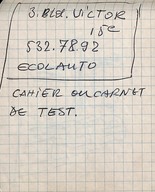 3. BLD. VICTOR
15e
532.78.92
ECOLAUTO
CAHIER OU CARNET
DE TEST.